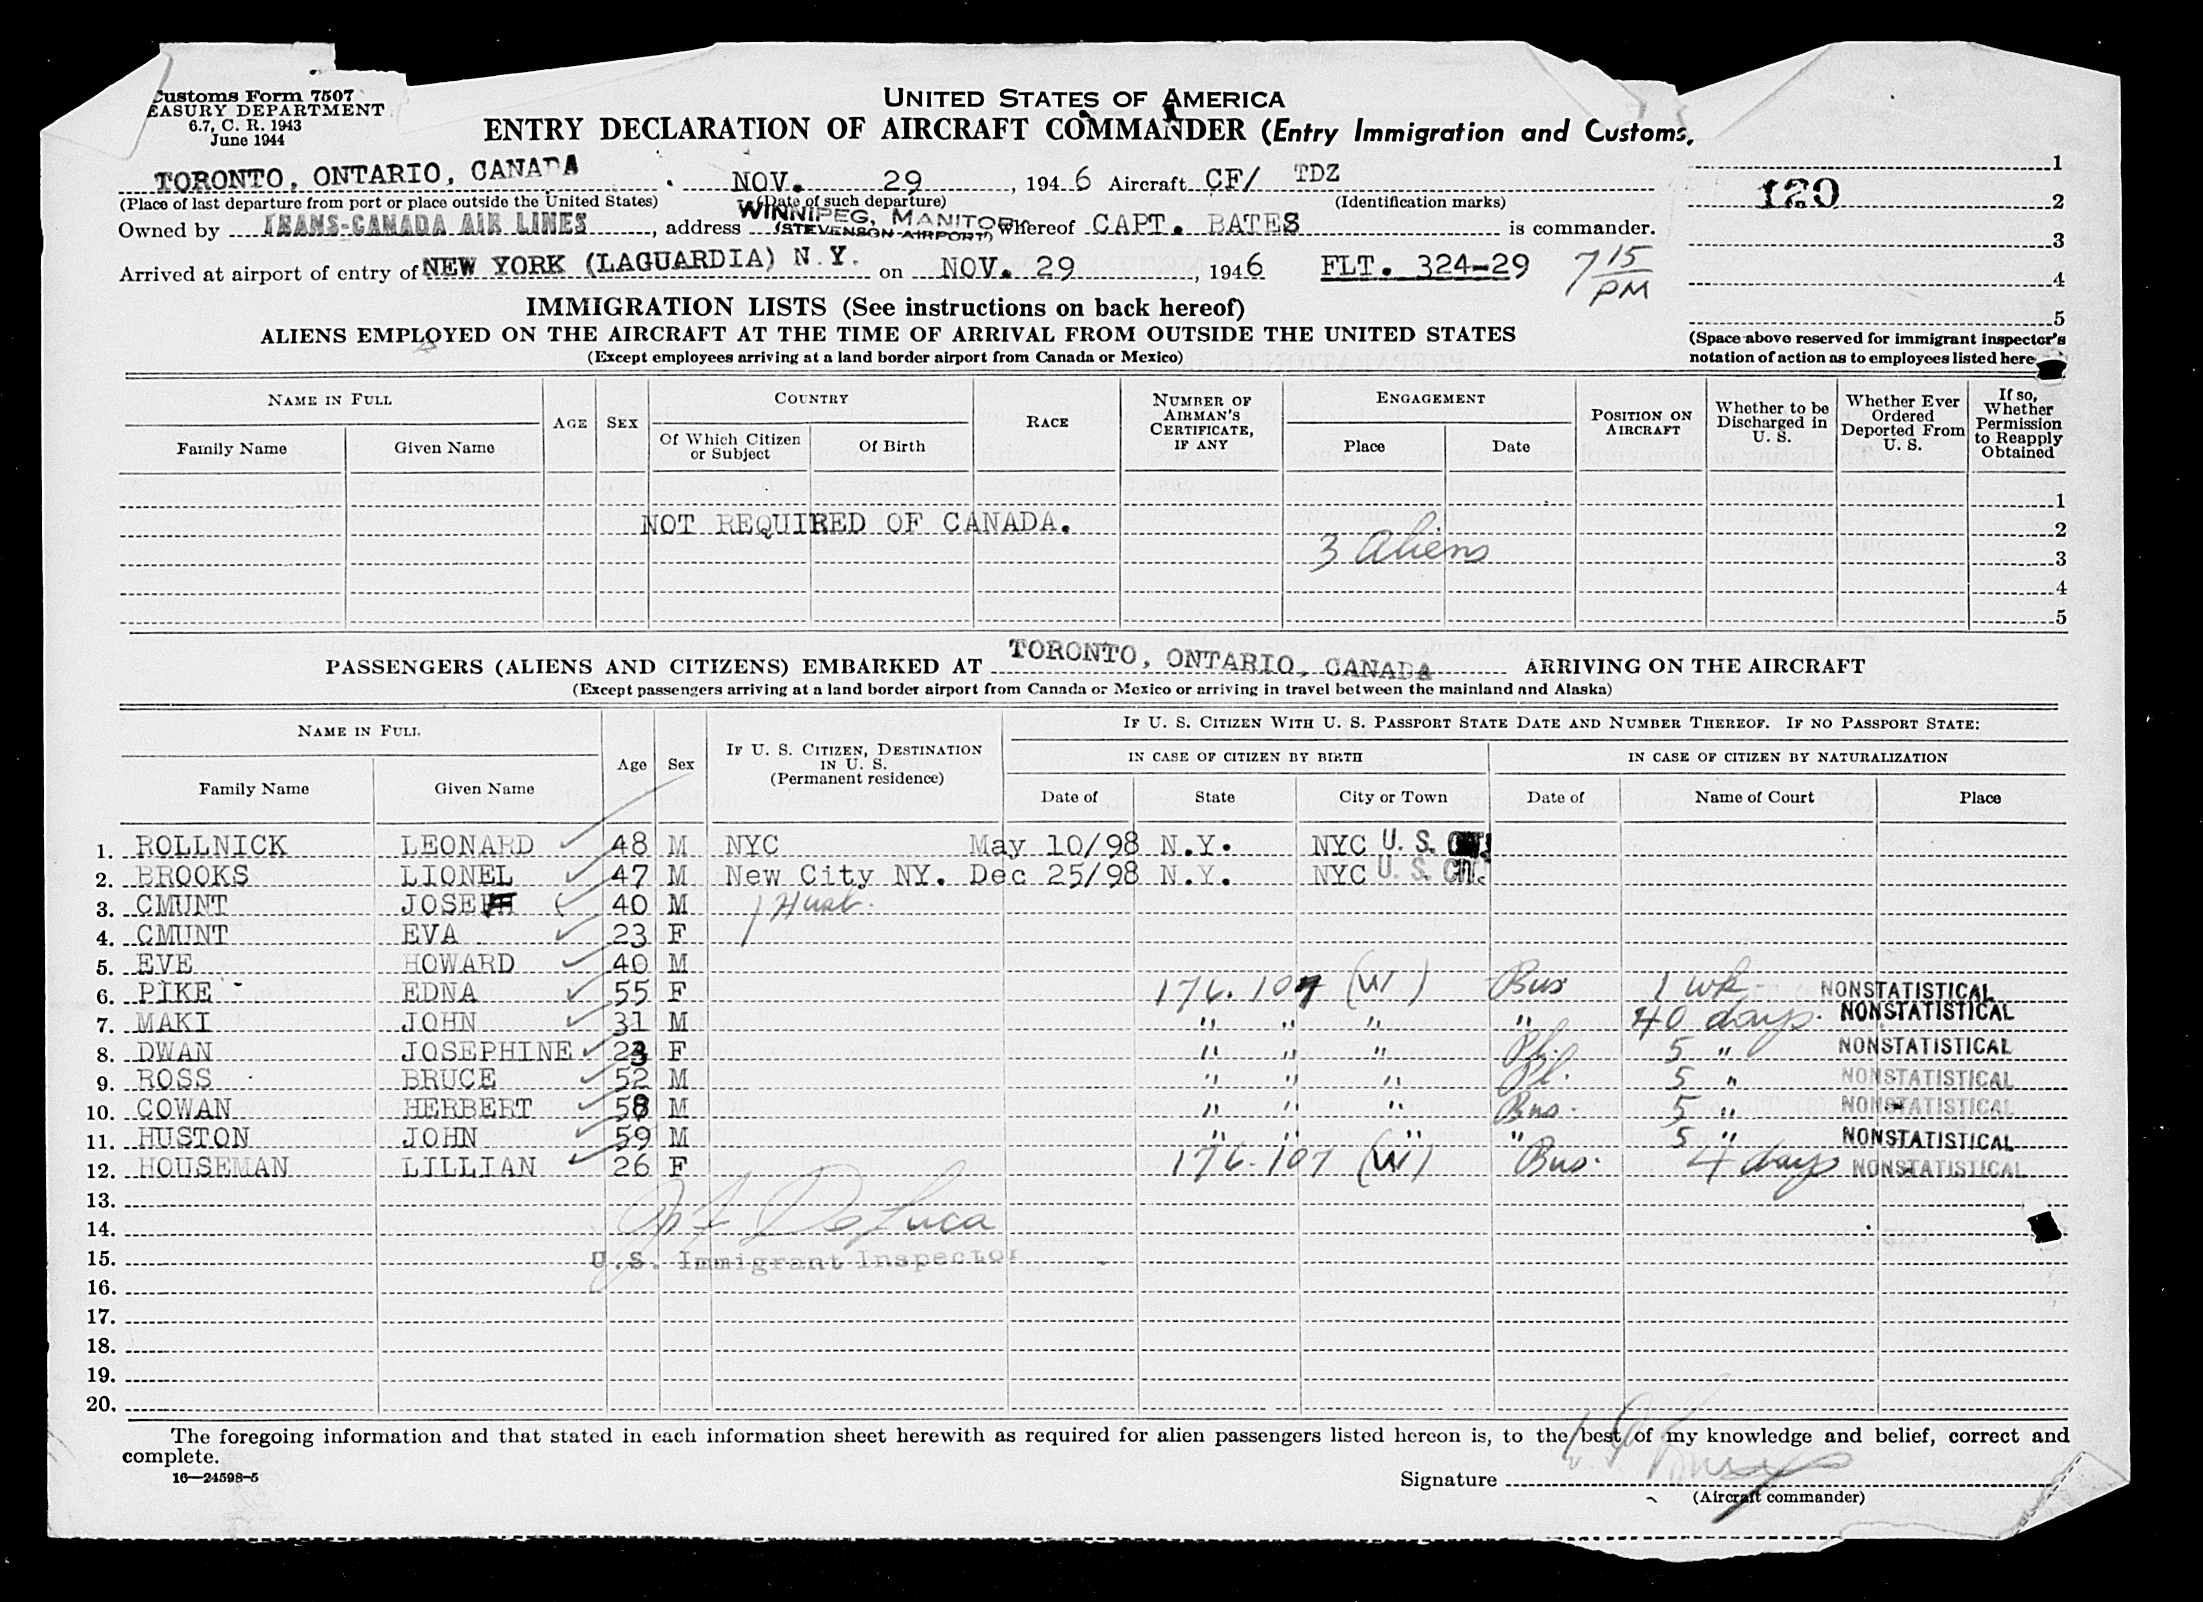 Customs Form 7507
EASURY DEPARTMENT
6.7, C. R. 1943
June 1944
UNITED STATES OF AMERICA
ENTRY DECLARATION OF AIRCRAFT COMMANDER (Entry Immigration and Customs,
TORONTO, ONTARIO, CANADA NOV. 29, 1946 Aircraft CF/ TDZ
(Place of last departure from port or place outside the United States) (Date of such departure) (Identification marks)
Owned by TRANS-CANADA AIR LINES, address WINNIPEG, MANITOBA (STEVENSON AIRPORT) Whereof CAPT. BATES is commander.
Arrived at airport of entry of NEW YORK (LAGUARDIA) N.Y. on NOV. 29, 1946 FLT. 324-29 7 15 PM
1
120 2
3
4
5
(Space above reserved for immigrant inspector's
notation of action as to employees listed here
IMMIGRATION LISTS (See instructions on back hereof)
ALIENS EMPLOYED ON THE AIRCRAFT AT THE TIME OF ARRIVAL FROM OUTSIDE THE UNITED STATES
(Except employees arriving at a land border airport from Canada or Mexico)
NAME IN FULL AGE SEX COUNTRY RACE NUMBER OF AIRMAN'S CERTIFICATE, IF ANY ENGAGEMENT POSITION ON AIRCRAFT Whether to be Discharged in U. S. Whether Ever Ordered Deported From U. S. If so, Whether Permission to Reapply Obtained
Family Name Given Name Of Which Citizen or Subject Of Birth Place Date
1
NOT REQUIRED OF CANADA. 2
3 Aliens 3
4
5
PASSENGERS (ALIENS AND CITIZENS) EMBARKED AT TORONTO, ONTARIO, CANADA ARRIVING ON THE AIRCRAFT
(Except passengers arriving at a land border airport from Canada or Mexico or arriving in travel between the mainland and Alaska)
NAME IN FULL Age Sex IF U. S. CITIZEN, DESTINATION IN U. S. (Permanent residence) IF U. S. CITIZEN WITH U. S. PASSPORT STATE DATE AND NUMBER THEREOF. IF NO PASSPORT STATE:
IN CASE OF CITIZEN BY BIRTH IN CASE OF CITIZEN BY NATURALIZATION
Family Name Given Name Date of State City or Town Date of Name of Court Place
1. ROLLNICK LEONARD 48 M NYC May 10/98 N.Y. NYC U. S. CIT.
2. BROOKS LIONEL 47 M New City NY. Dec 25/98 N.Y. NYC U. S. CIT.
3. CMUNT JOSEPH 40 M Husb.
4. CMUNT EVA 23 F
5. EVE HOWARD 40 M
6. PIKE EDNA 55 F 176.107 (W) Bus 1 wk NONSTATISTICAL
7. MAKI JOHN 31 M " " " " 40 days. NONSTATISTICAL
8. DWAN JOSEPHINE 23 F " " " Pl. 5 " NONSTATISTICAL
9. ROSS BRUCE 52 M " " " Pl. 5 " NONSTATISTICAL
10. COWAN HERBERT 58 M " " " Bus. 5 " NONSTATISTICAL
11. HUSTON JOHN 59 M " " " " 5 " NONSTATISTICAL
12. HOUSEMAN LILLIAN 26 F 176.107 (W) Bus. 4 days NONSTATISTICAL
13.
14. De Luca
15. U.S. Immigrant Inspector
16.
17.
18.
19.
20.
The foregoing information and that stated in each information sheet herewith as required for alien passengers listed hereon is, to the best of my knowledge and belief, correct and
complete.
16—24598-5
Signature
(Aircraft commander)